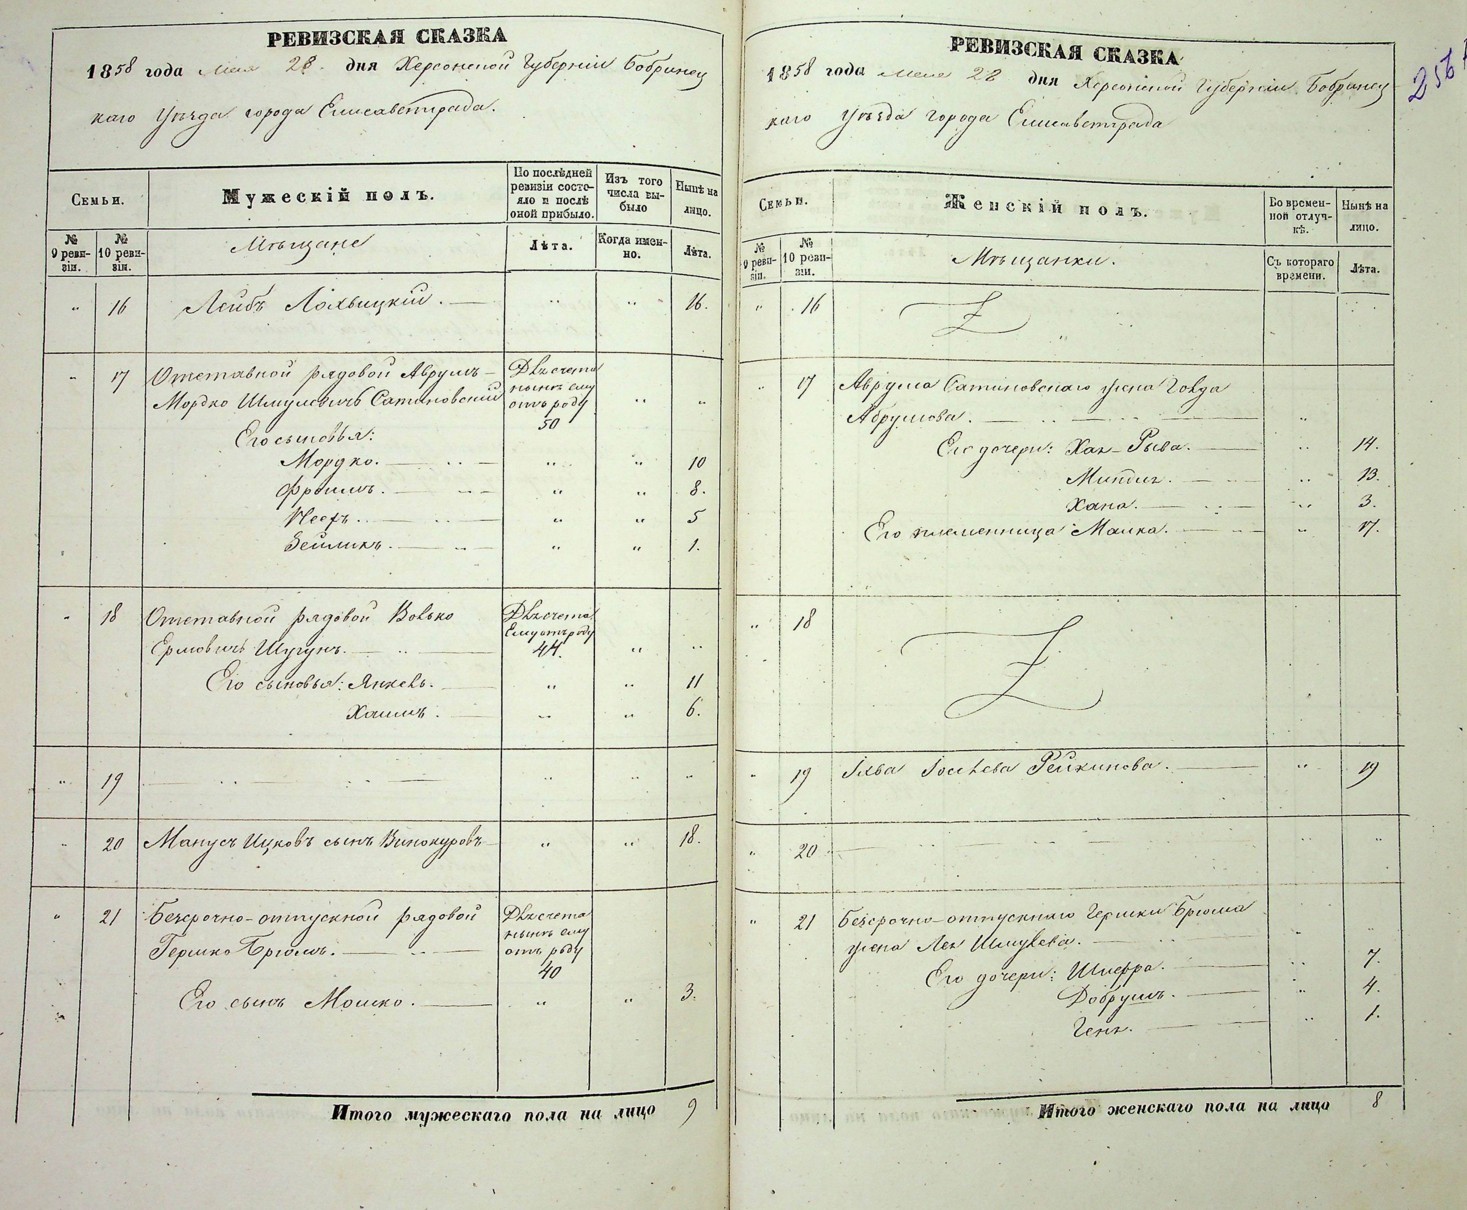 РЕВИЗСКАЯ СКАЗКА
1858 года Мая 28 дня Херсонской Губернiи Бобринец
каго Уѣзда города Елисаветграда.
Семьи.
Мужескiй полъ.
По послѣдней ревизiи состояло и послѣ оной прибыло.
Изъ того числа выбыло
Нынѣ на лицо.
№ 9 ревизiи.
№ 10 ревизiи.
Мѣщане
Лѣта.
Когда именно.
Лѣта.
„ 16 Лейбъ Лохвицкiй. — „ „ 16.
„ 17 Отставной рядовой Аврумъ- Внѣ счета
Мордко Шмулевичъ Сатановскiй нынѣ ему отъ роду 50 „ „
Его сыновья:
Мордко. — „ „ 10
Фроимъ. — „ „ 8.
Iосъ. — „ „ 5
Зейликъ. — „ „ 1.
„ 18 Отставной рядовой Вовько Внѣ счета
Ермовичъ Шугунъ. — Ему отъ роду 44. „ „
Его сыновья: Янкевь. — „ „ 11
Хаимъ. — „ „ 6.
„ 19 — „ „ „
„ 20 Манусъ Ицковъ сынъ Винокуровъ „ „ 18.
„ 21 Безсрочно-отпускной рядовой Внѣ счета
Гершко Брюмъ. — нынѣ ему отъ роду 40
Его сынъ Мошко. — „ „ 3.
Итого мужескаго пола на лицо 9
256
РЕВИЗСКАЯ СКАЗКА
1858 года Мая 28 дня Херсонской Губернiи Бобринец
каго Уѣзда города Елисаветграда
Семьи.
Женскiй полъ.
Во временной отлучкѣ.
Нынѣ на лицо.
№ 9 ревизiи.
№ 10 ревизiи.
Мѣщанки.
Съ котораго времени.
Лѣта.
„ 16
„ 17 Аврума Сатановскаго жена Говда
Абрумова. — „
Его дочери: Хая-Рыва. — „ 14.
Миндля. — „ 13.
Хана. — „ 3.
Его племенница Малка. — „ 17.
„ 18
„ 19 Хава Iосiева Рейкинова. — „ 19
„ 20 — „ „
„ 21 Безсрочно-отпускнаго Гершки Брюма
жена Лея Шмулева. — „ „
Его дочери: Шифра. — „ 7.
Добрушъ. — „ 4.
Геня. — „ 1.
Итого женскаго пола на лицо 8